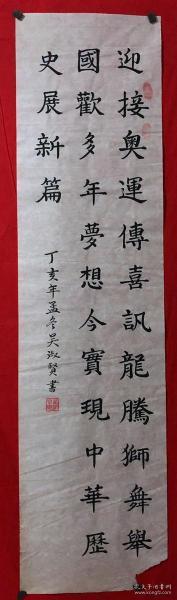 迎接奧運傳喜訊龍騰獅舞舉
國歡多年夢想今實現中華歷
史展新篇
丁亥年孟冬吴淑賢書